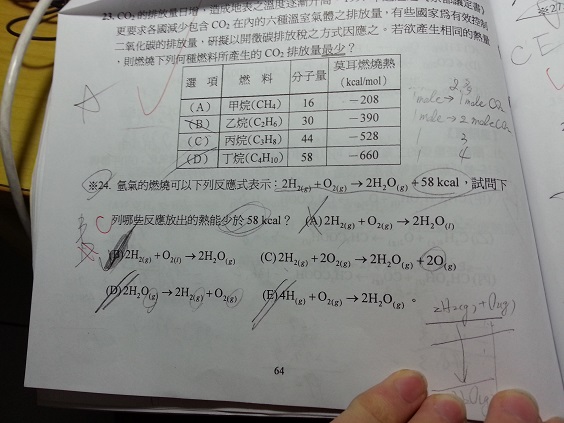 23. CO₂ 的排放量日增,造成地表之溫度逐漸升高。
更要求各國減少包含 CO₂ 在內的六種溫室氣體之排放量,有些國家為有效控制
二氧化碳的排放量,研擬以開徵碳排放稅之方式因應之。若欲產生相同的熱量
,則燃燒下列何種燃料所產生的 CO₂ 排放量最少?
選 項 燃 料 分子量 莫耳燃燒熱 (kcal/mol)
(A) 甲烷(CH₄) 16 −208
(B) 乙烷(C₂H₆) 30 −390
(C) 丙烷(C₃H₈) 44 −528
(D) 丁烷(C₄H₁₀) 58 −660
A
1 mole → 1 mole CO₂
1 mole → 2 mole CO₂
1 3
1 4
※24. 氫氣的燃燒可以下列反應式表示:2H₂(g)+O₂(g)→2H₂O(g)+58 kcal,試問下
C 列哪些反應放出的熱能少於 58 kcal? (A)2H₂(g)+O₂(g)→2H₂O(l)
(B)2H₂(g)+O₂(l)→2H₂O(g) (C)2H₂(g)+2O₂(g)→2H₂O(g)+2O(g)
(D)2H₂O(g)→2H₂(g)+O₂(g) (E)4H(g)+O₂(g)→2H₂O(g)。
2H₂(g)+O₂(g)
64